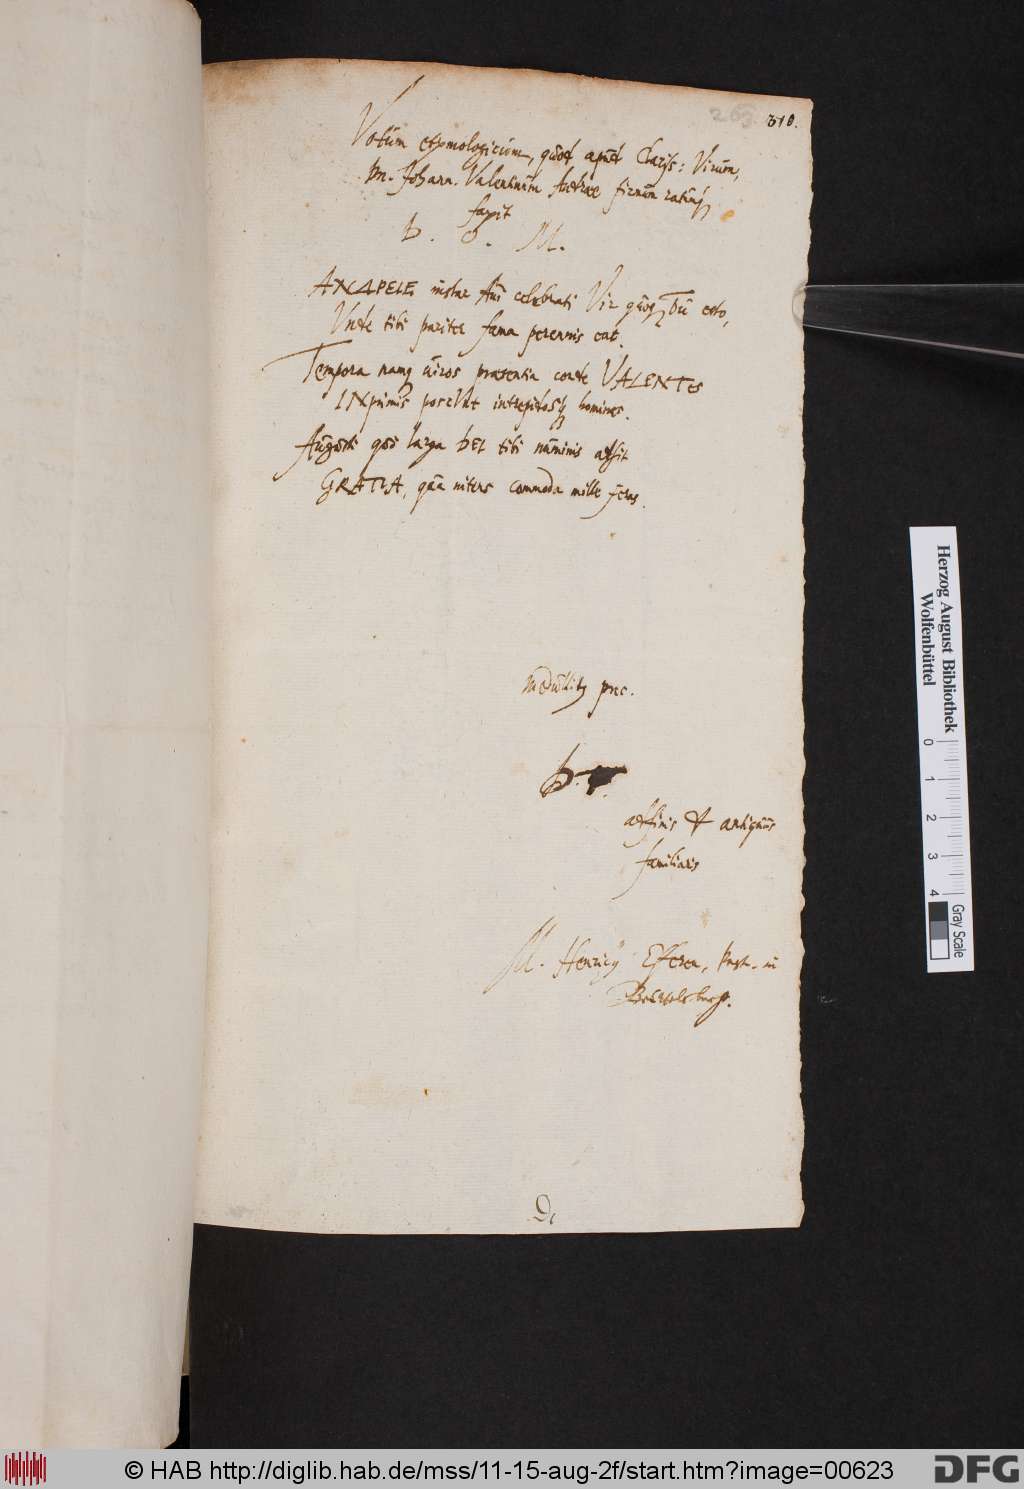 263. 310.
Votum etymologicum, quod apud Clariss: Virum,
Dn. Johann. Valentinum Andreae firmum ratumq
faxit
D. O. M.
ANDREAE instar Avi celebrati Vir quoq Tu esto,
Unde tibi pariter fama perennis eat.
Tempora namq viros praesentia corde VALENTes
INprimis poscunt intrepidosq homines.
Augusti quod larga Dei tibi numinis adsit
GRATIA, qua nitens commoda mille feras.
medullitq prec.
D. T.
adfinis & antiquus
familiaris
M. Henricq Efferen, Past. in
Herzog August Bibliothek
Wolfenbüttel
0 1 2 3 4
Gray Scale
© HAB http://diglib.hab.de/mss/11-15-aug-2f/start.htm?image=00623
DFG